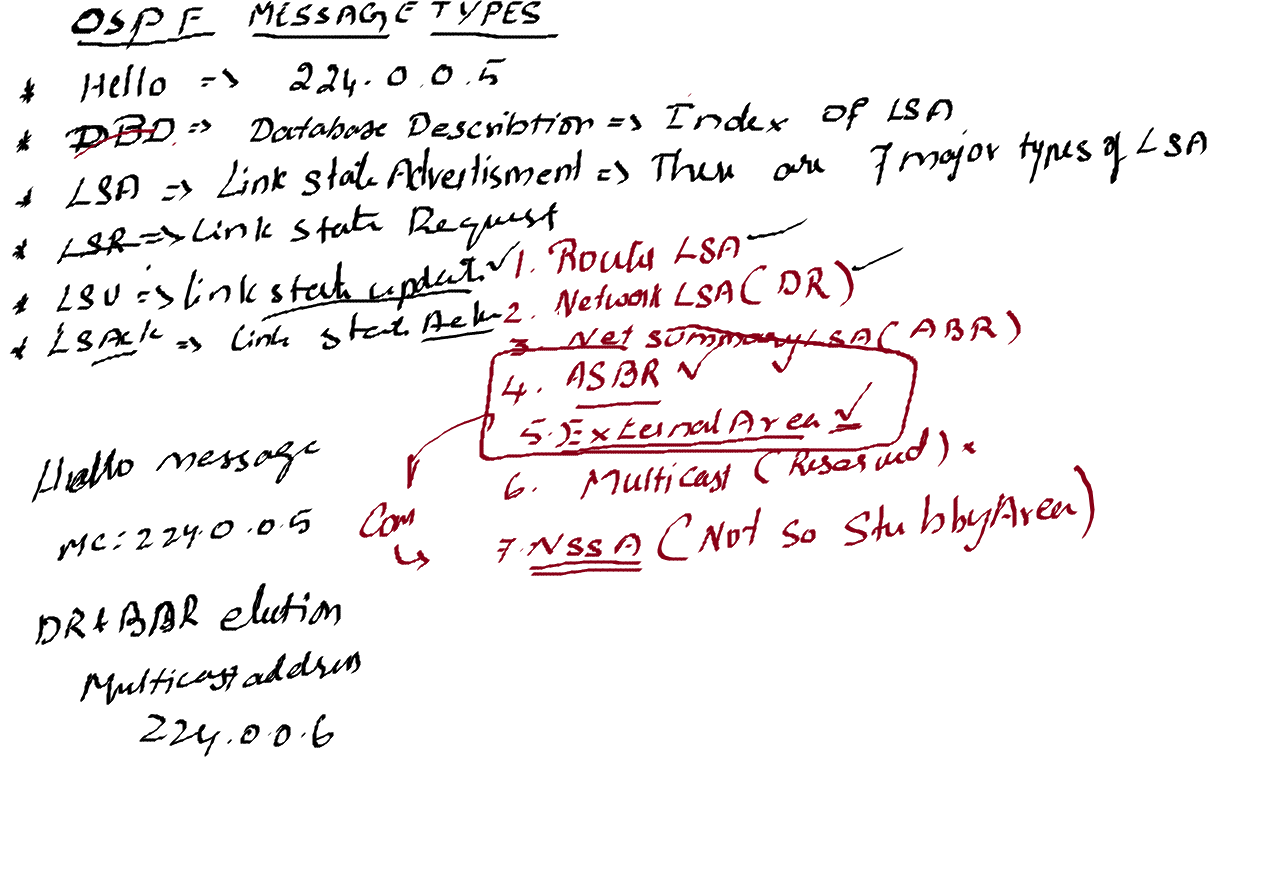 OSPF MESSAGE TYPES
* Hello => 224.0.0.5
* DBD => Database Describtion => Index of LSA
* LSA => Link State Advertisment => There are 7 major types of LSA
* LSR => Link State Request
* LSU => Link state update ✓
* LSAck => Link state Ack
1. Router LSA ✓
2. Network LSA (DR) ✓
3. Net summary LSA (ABR)
4. ASBR ✓ ✓
5. External Area ✓
6. Multicast (Reserved) ×
7. NSSA (Not So Stubby Area)
Com
Hello message
MC: 224.0.0.5
DR + BDR
Multicast address
224.0.0.6